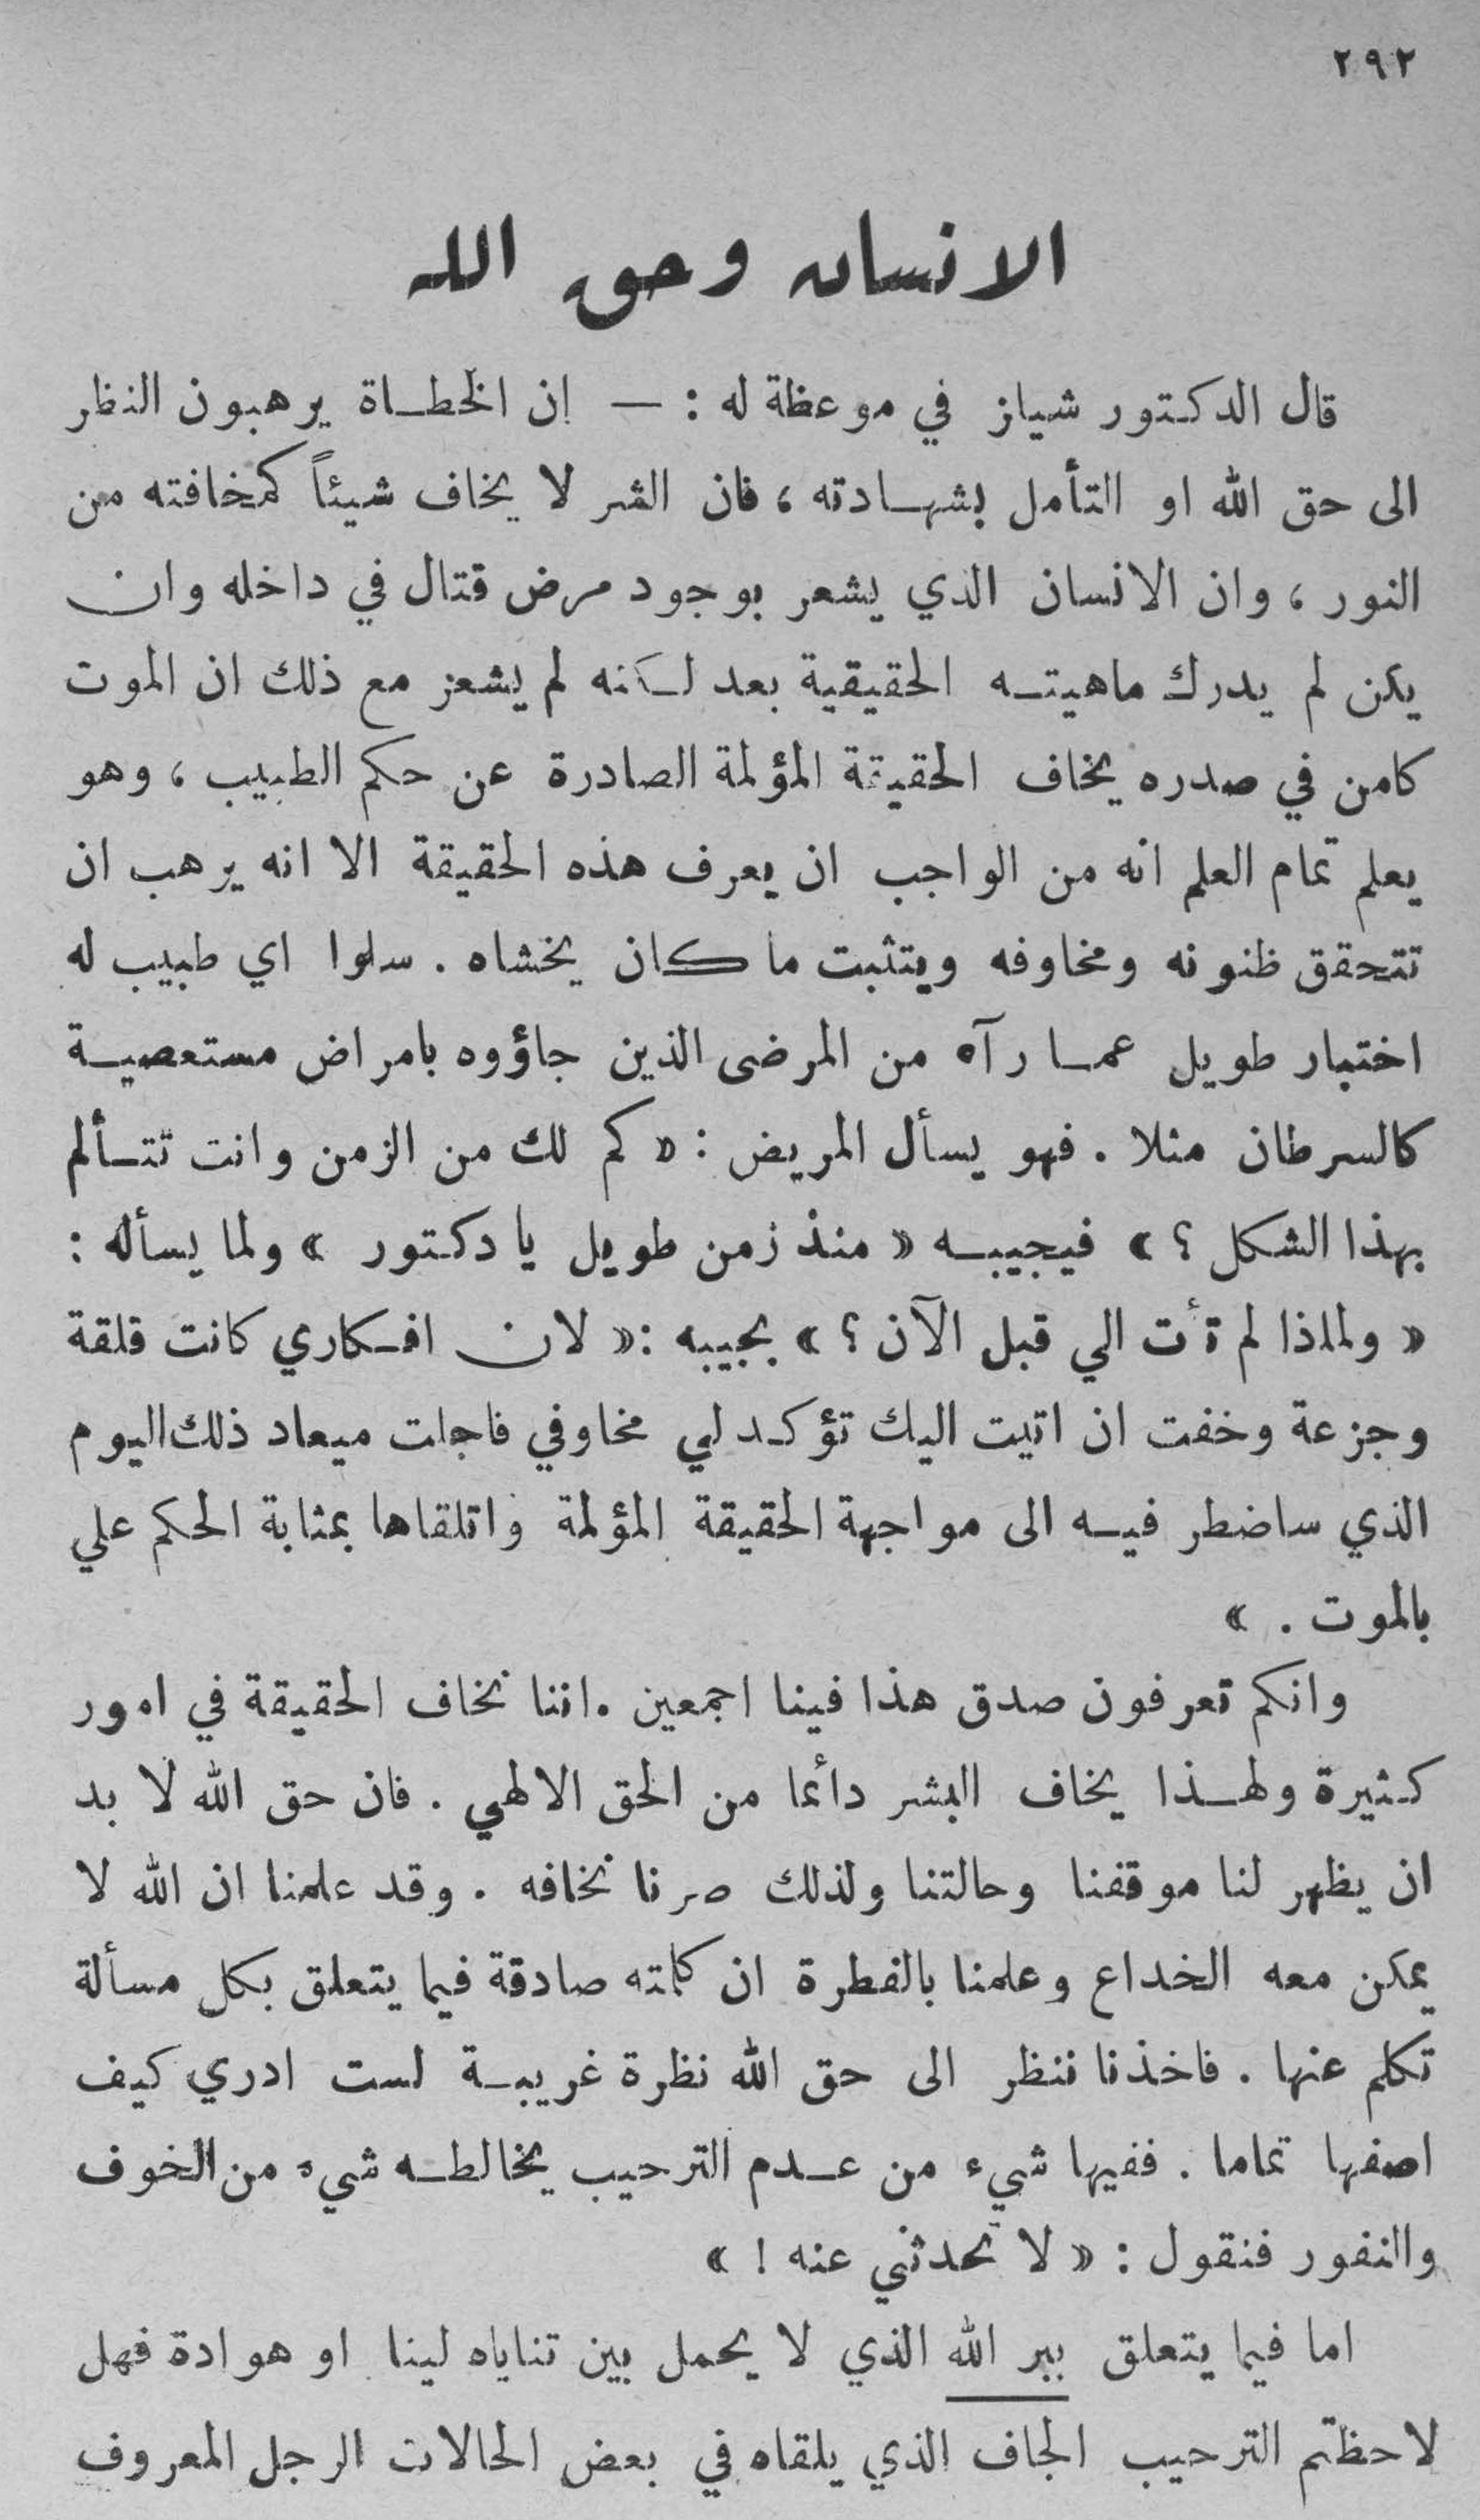 ٢٩٢
الانسان وحق الله
قال الدكتور شياز في موعظة له : — إن الخطاة يرهبون النظر
الى حق الله او التأمل بشهادته ، فان الشر لا يخاف شيئاً كمخافته من
النور ، وان الانسان الذي يشعر بوجود مرض قتال في داخله وان
يكن لم يدرك ماهيته الحقيقية بعد لكنه لم يشعر مع ذلك ان الموت
كامن في صدره يخاف الحقيقة المؤلمة الصادرة عن حكم الطبيب ، وهو
يعلم تمام العلم انه من الواجب ان يعرف هذه الحقيقة الا انه يرهب ان
تتحقق ظنونه ومخاوفه ويتثبت ما كان يخشاه . سلوا اي طبيب له
اختبار طويل عما رآه من المرضى الذين جاؤوه بامراض مستعصية
كالسرطان مثلا . فهو يسأل المريض : « كم لك من الزمن وانت تتألم
بهذا الشكل ؟ » فيجيبه « منذ زمن طويل يا دكتور » ولما يسأله :
« ولماذا لم تأت الي قبل الآن ؟ » يجيبه : « لان افكاري كانت قلقة
وجزعة وخفت ان اتيت اليك تؤكد لي مخاوفي فاجلت ميعاد ذلك اليوم
الذي ساضطر فيه الى مواجهة الحقيقة المؤلمة واتلقاها بمثابة الحكم علي
بالموت . »
وانكم تعرفون صدق هذا فينا اجمعين . اننا نخاف الحقيقة في امور
كثيرة ولهذا يخاف البشر دائما من الحق الالهي . فان حق الله لا بد
ان يظهر لنا موقفنا وحالتنا ولذلك صرنا نخافه . وقد علمنا ان الله لا
يمكن معه الخداع وعلمنا بالفطرة ان كلمته صادقة فيما يتعلق بكل مسألة
تكلم عنها . فاخذنا ننظر الى حق الله نظرة غريبة لست ادري كيف
اصفها تماما . ففيها شيء من عدم الترحيب يخالطه شيء من الخوف
والنفور فنقول : « لا تحدثني عنه ! »
اما فيما يتعلق ببر الله الذي لا يحمل بين تناياه لينا او هوادة فهل
لاحظتم الترحيب الجاف الذي يلقاه في بعض الحالات الرجل المعروف